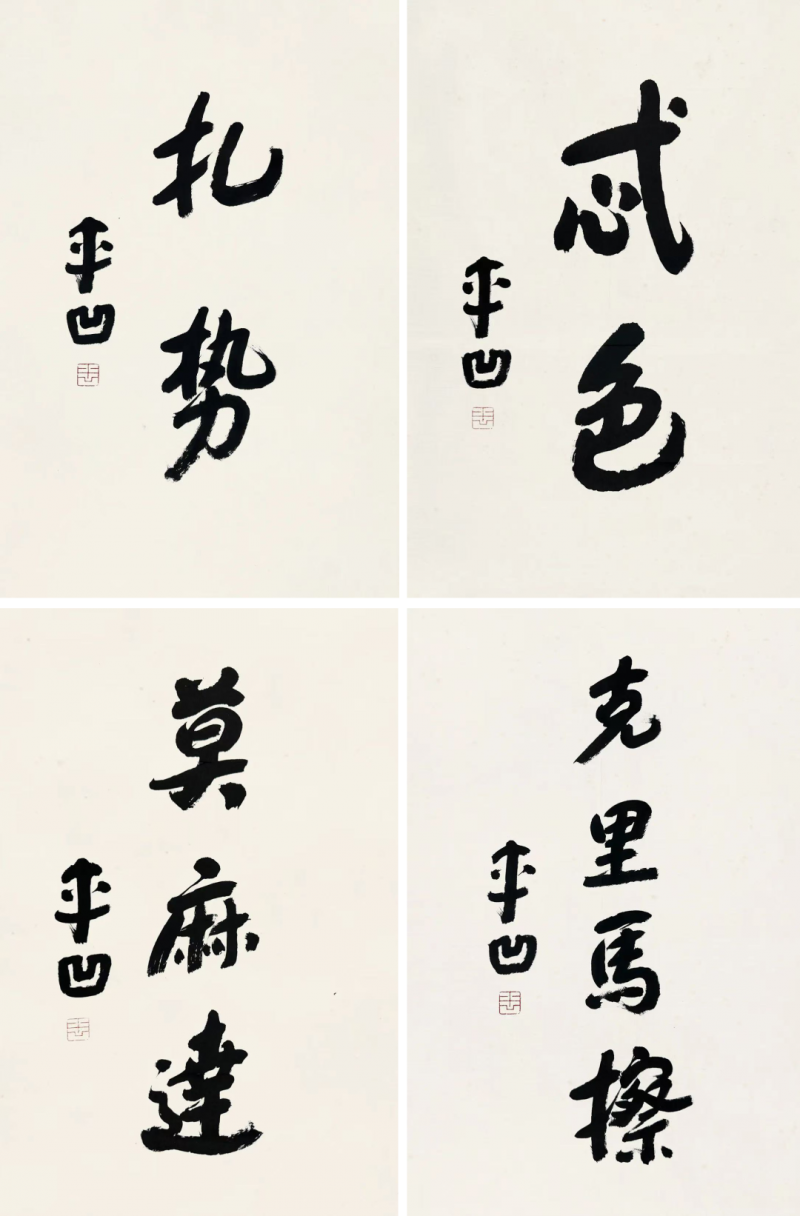 扎势
平凹
忒色
平凹
莫麻達
平凹
克里馬擦
平凹